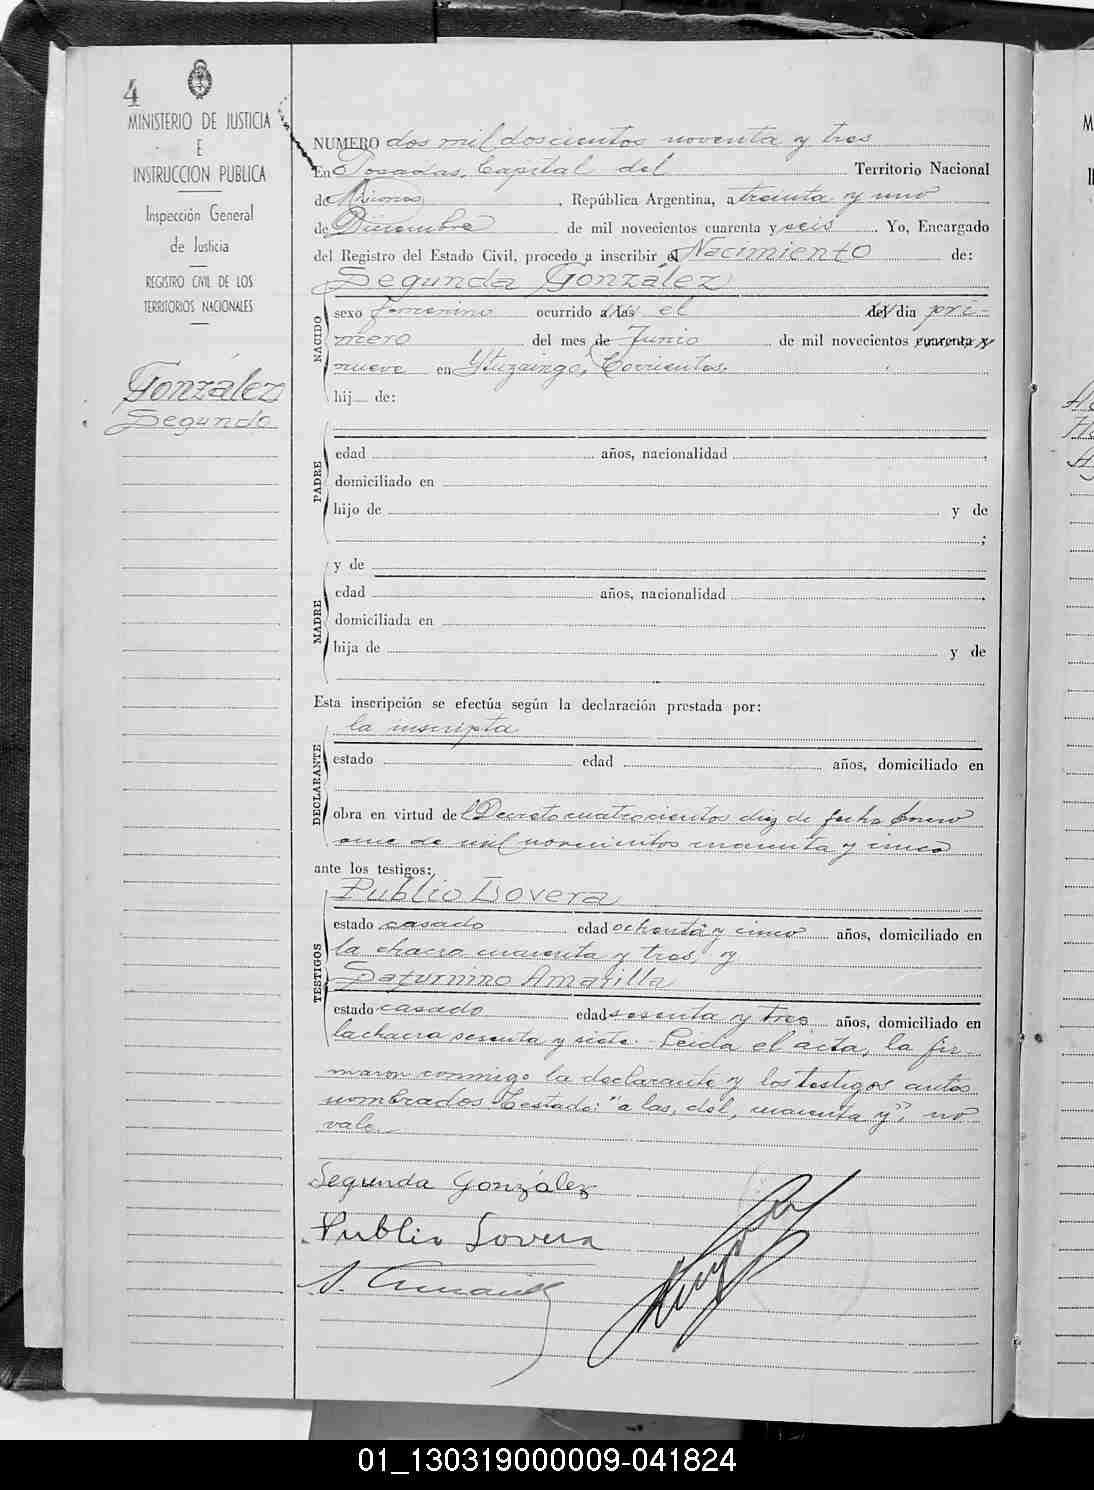 4
MINISTERIO DE JUSTICIA
E
INSTRUCCION PUBLICA
Inspección General
de Justicia
REGISTRO CIVIL DE LOS
TERRITORIOS NACIONALES
González
Segunda
NUMERO dos mil doscientos noventa y tres
En Posadas, Capital del Territorio Nacional
de Misiones, República Argentina, a treinta y uno
de Diciembre de mil novecientos cuarenta y seis. Yo, Encargado
del Registro del Estado Civil, procedo a inscribir el Nacimiento de:
Segunda González
NACIDO
sexo femenino ocurrido a las el del dia pri-
mero del mes de Junio de mil novecientos cuarenta y
nueve en Ytuzaingó, Corrientes.
hij de:
PADRE
edad años, nacionalidad
domiciliado en
hijo de y de
;
y de
MADRE
edad años, nacionalidad
domiciliada en
hija de y de
Esta inscripción se efectúa según la declaración prestada por:
la inscripta
DECLARANTE
estado edad años, domiciliado en
obra en virtud del Decreto cuatrocientos diez de fecha Enero
once de mil novecientos cuarenta y cinco
ante los testigos:
Publio Lovera
TESTIGOS
estado casado edad ochenta y cinco años, domiciliado en
la chacra cuarenta y tres, y
Saturnino Amarilla
estado casado edad sesenta y tres años, domiciliado en
la chacra sesenta y siete. Leida el acta, la fir-
maron conmigo la declarante y los testigos antes
nombrados. Testado: "a las, del, cuarenta y", no
vale.
Segunda González
Publio Lovera
S. Amarilla
01_130319000009-041824